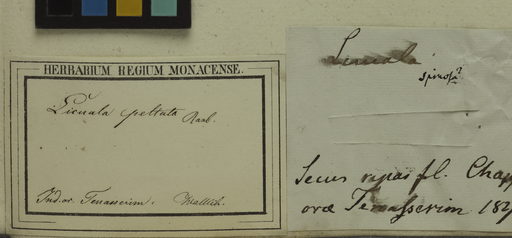 HERBARIUM REGIUM MONACENSE.
Licuala peltata Roxb.
Ind. or. Tenasserim. Wallich.
Licuala
spinosa?
Secus ripas fl. Chap
oræ Tenasserim 182